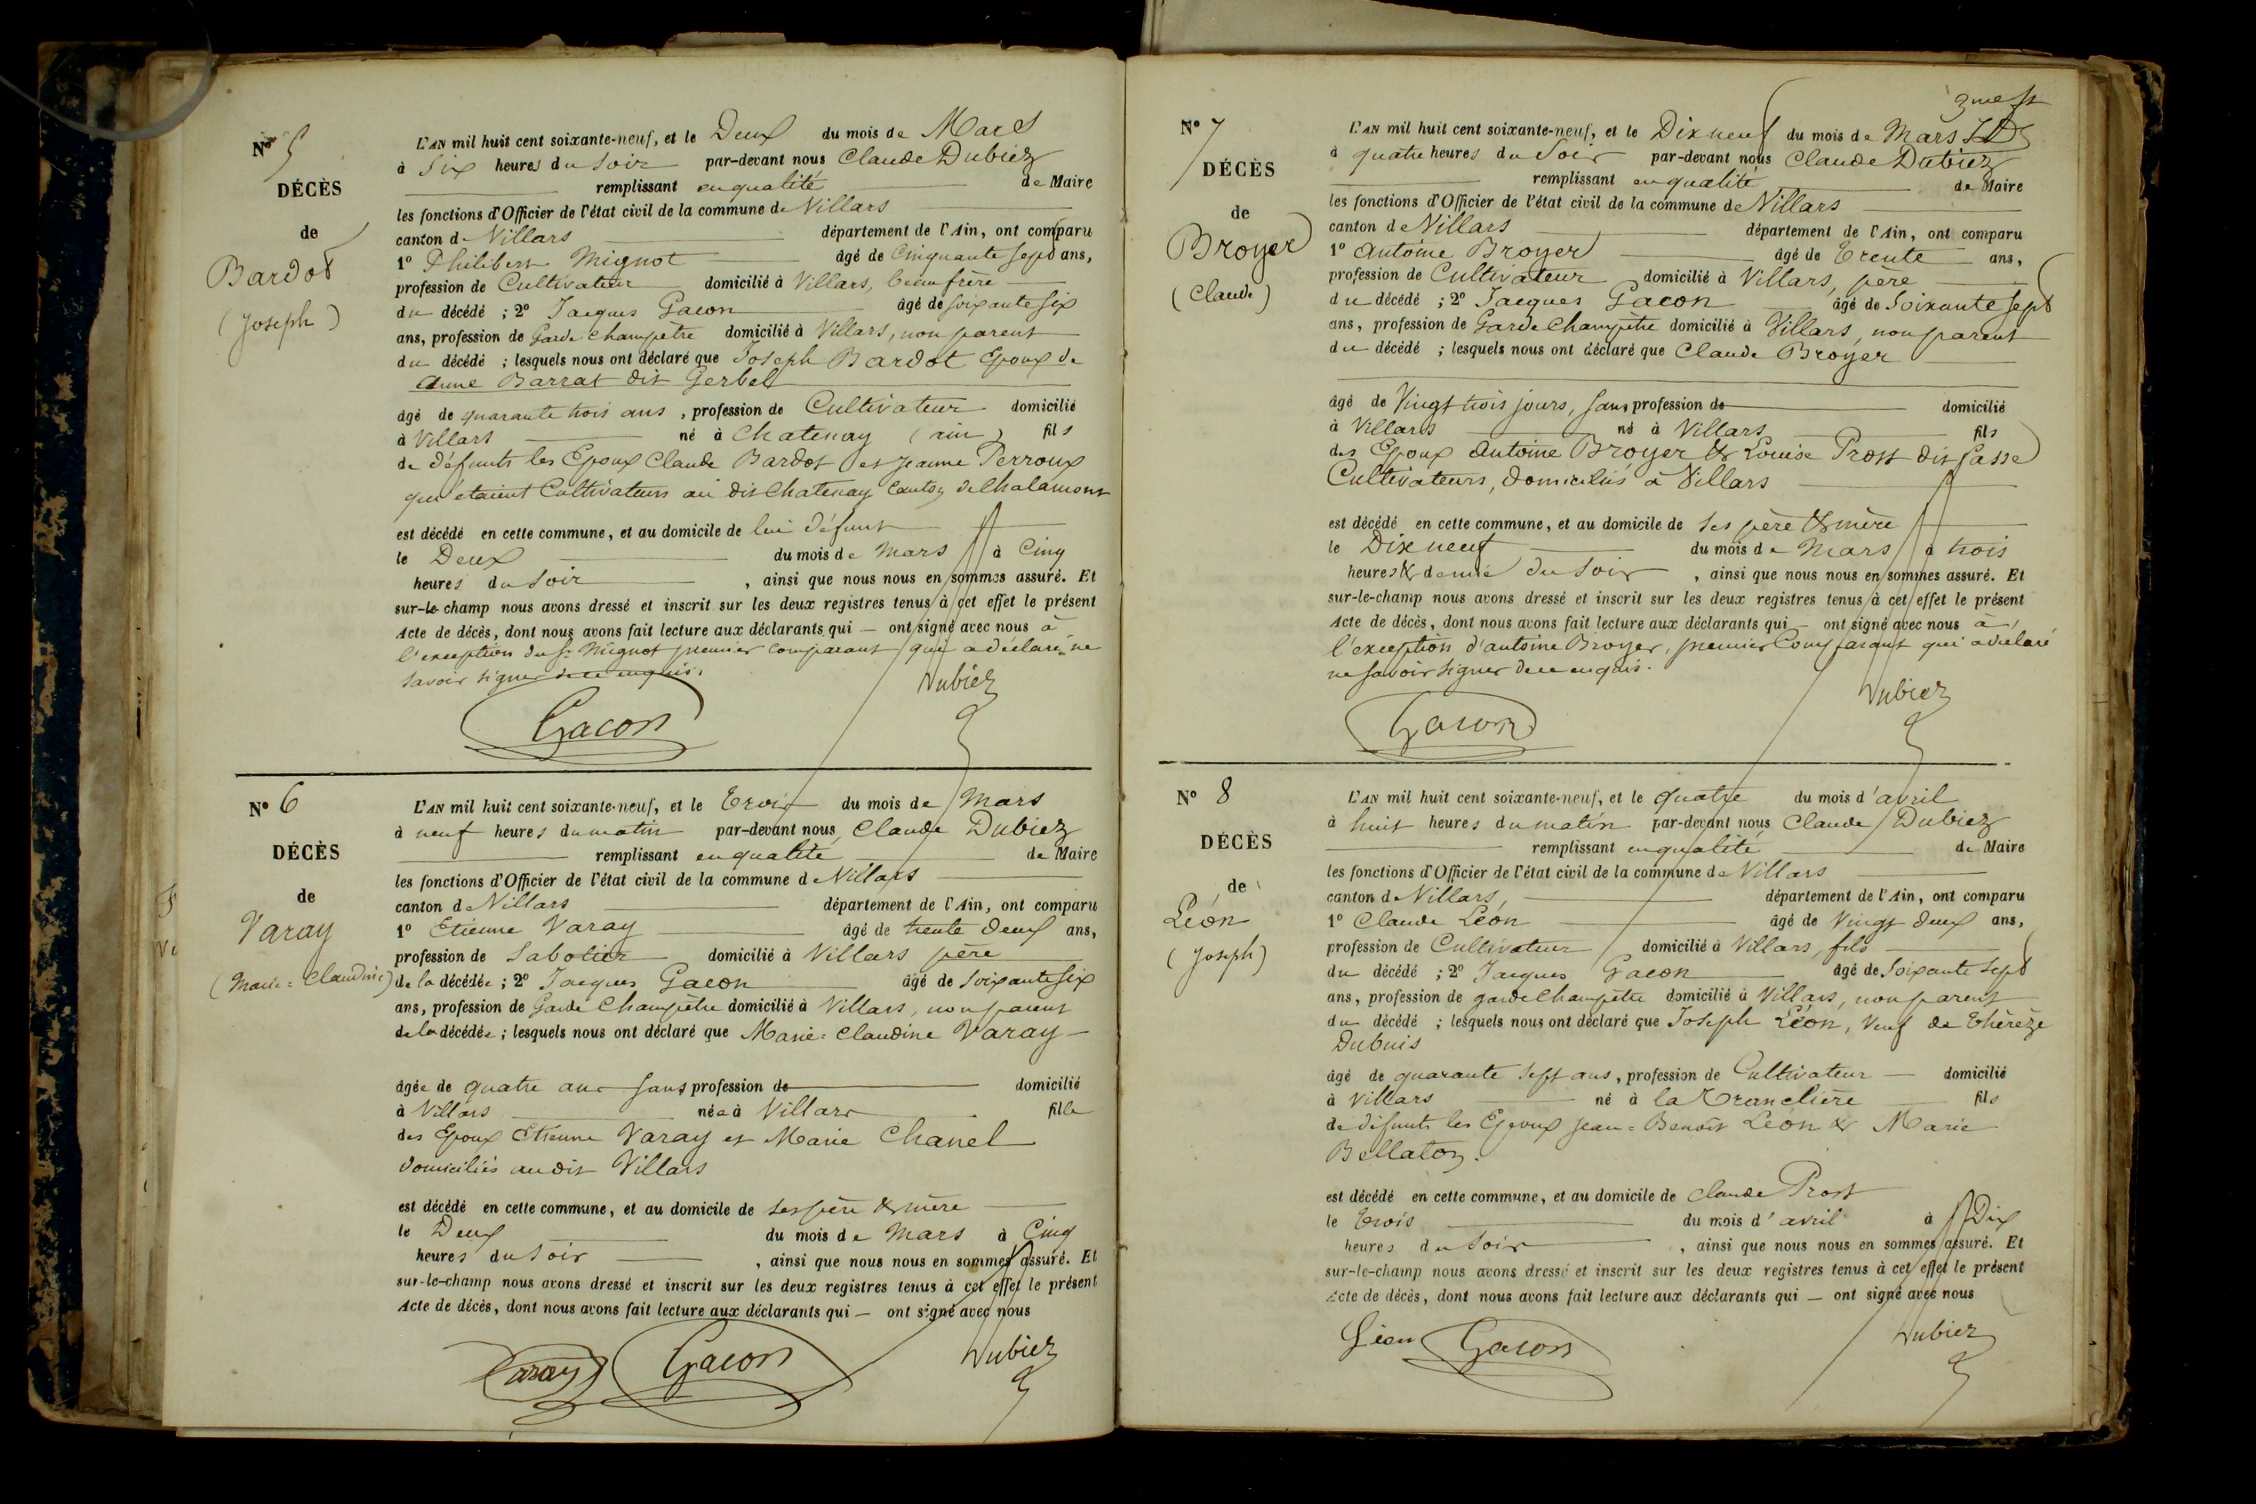 N° 5
DÉCÈS
de
Bardot
(Joseph)
L'AN mil huit cent soixante-neuf, et le Deux du mois de Mars
à Six heures du Soir par-devant nous Claude Dubiez
remplissant en qualité de Maire
les fonctions d'Officier de l'état civil de la commune de Villars
canton de Villars département de l'Ain, ont comparu
1° Philibert Mignot âgé de Cinquante Sept ans,
profession de Cultivateur domicilié à Villars, beau frère
du décédé ; 2° Jacques Gacon âgé de Soixante Six
ans, profession de Garde Champêtre domicilié à Villars, non parent
du décédé ; lesquels nous ont déclaré que Joseph Bardot Epoux de
Anne Barrat dit Gerbel
âgé de quarante trois ans, profession de Cultivateur domicilié
à Villars né à Chatenay (ain) fils
de défunts les Epoux Claude Bardot et Jeanne Perroux
qui étaient Cultivateurs au dit Chatenay Canton de Chalamont
est décédé en cette commune, et au domicile de lui défunt
le Deux du mois de Mars à Cinq
heures du Soir, ainsi que nous nous en sommes assuré. Et
sur-le-champ nous avons dressé et inscrit sur les deux registres tenus à cet effet le présent
Acte de décès, dont nous avons fait lecture aux déclarants qui — ont signé avec nous à
l'exception du Sr Mignot premier comparant qui a déclaré ne
savoir signer de ce enquis.
Gacon Dubiez
N° 6
DÉCÈS
de
Varay
(Marie=Claudine)
L'AN mil huit cent soixante-neuf, et le Trois du mois de Mars
à neuf heures du matin par-devant nous, Claude Dubiez
remplissant en qualité de Maire
les fonctions d'Officier de l'état civil de la commune de Villars
canton de Villars département de l'Ain, ont comparu
1° Etienne Varay âgé de trente deux ans,
profession de Sabotier domicilié à Villars père
de la décédée ; 2° Jacques Gacon âgé de Soixante Six
ans, profession de Garde Champêtre domicilié à Villars, non parent
de la décédée ; lesquels nous ont déclaré que Marie=Claudine Varay
âgée de quatre ans sans profession de domicilié
à Villars née à Villars fille
des Epoux Etienne Varay et Marie Chanel
domiciliés au dit Villars
est décédé en cette commune, et au domicile de ses père & mère
le Deux du mois de Mars à Cinq
heures du Soir, ainsi que nous nous en sommes assuré. Et
sur-le-champ nous avons dressé et inscrit sur les deux registres tenus à cet effet le présent
Acte de décès, dont nous avons fait lecture aux déclarants qui — ont signé avec nous
Varay Gacon Dubiez
3me ft
N° 7
DÉCÈS
de
Broyer
(Claude)
L'AN mil huit cent soixante-neuf, et le Dix neuf du mois de Mars
à quatre heures du Soir par-devant nous Claude Dubiez
remplissant en qualité de Maire
les fonctions d'Officier de l'état civil de la commune de Villars
canton de Villars département de l'Ain, ont comparu
1° Antoine Broyer âgé de Trente ans,
profession de Cultivateur domicilié à Villars, père
du décédé ; 2° Jacques Gacon âgé de Soixante Sept
ans, profession de Garde Champêtre domicilié à Villars, non parent
du décédé ; lesquels nous ont déclaré que Claude Broyer
âgé de Vingt trois jours, sans profession de domicilié
à Villars né à Villars fils
des Epoux Antoine Broyer & Louise Prost dit Passe
Cultivateurs, domiciliés à Villars
est décédé en cette commune, et au domicile de ses père & mère
le Dix neuf du mois de Mars à trois
heures & demie du Soir, ainsi que nous nous en sommes assuré. Et
sur-le-champ nous avons dressé et inscrit sur les deux registres tenus à cet effet le présent
Acte de décès, dont nous avons fait lecture aux déclarants qui — ont signé avec nous à
l'exception d'antoine Broyer, premier Comparant qui a déclaré
ne savoir signer de ce enquis.
Gacon Dubiez
N° 8
DÉCÈS
de
Léon
(Joseph)
L'AN mil huit cent soixante-neuf, et le quatre du mois d'avril
à huit heures du matin par-devant nous Claude Dubiez
remplissant en qualité de Maire
les fonctions d'Officier de l'état civil de la commune de Villars
canton de Villars, département de l'Ain, ont comparu
1° Claude Léon âgé de Vingt deux ans,
profession de Cultivateur domicilié à Villars, fils
du décédé ; 2° Jacques Gacon âgé de Soixante Sept
ans, profession de garde Champêtre domicilié à Villars, non parent
du décédé ; lesquels nous ont déclaré que Joseph Léon, Veuf de Thérèze
Dubuis
âgé de quarante sept ans, profession de Cultivateur domicilié
à Villars né à la Tranclière fils
de défunts les Epoux Jean=Benoit Léon & Marie
Bellaton.
est décédé en cette commune, et au domicile de Claude Prost
le Trois du mois d'avril à Dix
heures du Soir, ainsi que nous nous en sommes assuré. Et
sur-le-champ nous avons dressé et inscrit sur les deux registres tenus à cet effet le présent
Acte de décès, dont nous avons fait lecture aux déclarants qui — ont signé avec nous
Léon Gacon Dubiez